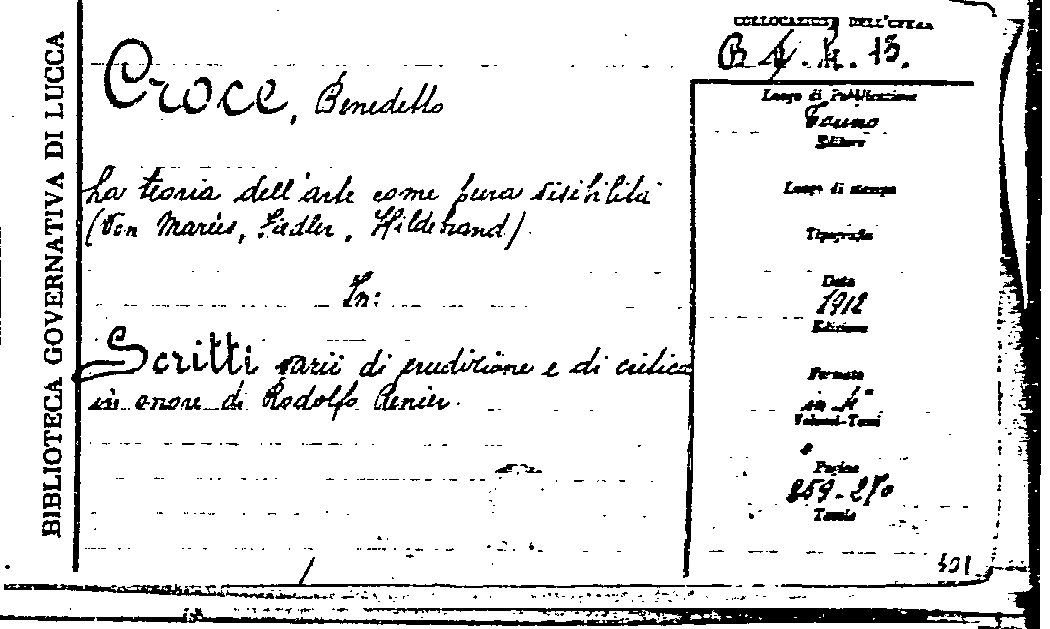 BIBLIOTECA GOVERNATIVA DI LUCCA
COLLOCAZIONE DELL'OPERA
Croce, Benedetto
La teoria dell'arte come pura visibilità
(Von Marées, Fiedler, Hildebrand)
In:
Scritti varii di erudizione e di critica
in onore di Rodolfo Renier.
Luogo di Pubblicazione
Editore
Luogo di stampa
Tipografia
Data
1912
Edizione
Formato
in 4°
Volumi-Tomi
Pagine
259-270
Tavole